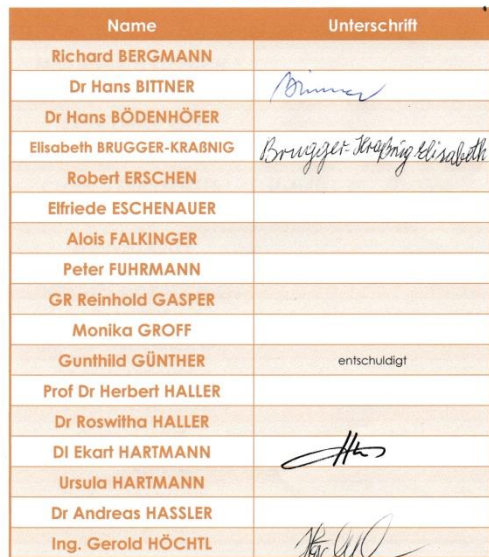 Name Unterschrift
Richard BERGMANN
Dr Hans BITTNER
Dr Hans BÖDENHÖFER
Elisabeth BRUGGER-KRAßNIG Brugger-Kraßnig Elisabeth
Robert ERSCHEN
Elfriede ESCHENAUER
Alois FALKINGER
Peter FUHRMANN
GR Reinhold GASPER
Monika GROFF
Gunthild GÜNTHER entschuldigt
Prof Dr Herbert HALLER
Dr Roswitha HALLER
DI Ekart HARTMANN
Ursula HARTMANN
Dr Andreas HASSLER
Ing. Gerold HÖCHTL